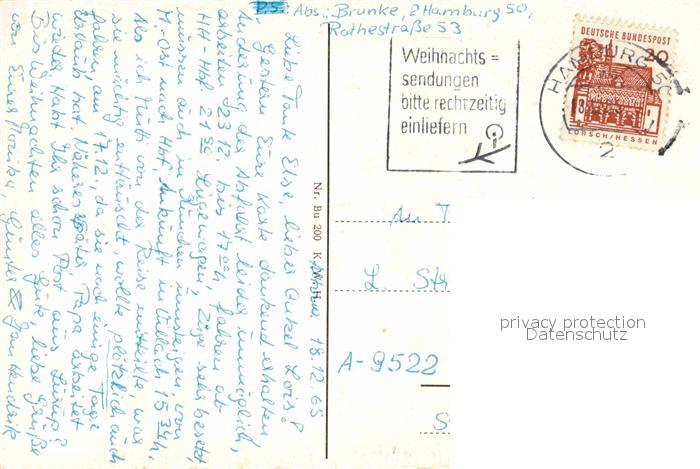 P.S.: Abs.: Brunke, 2 Hamburg 50,
Rothestraße 53
Weihnachts=
sendungen
bitte rechtzeitig
einliefern
DEUTSCHE BUNDESPOST
20
LORSCH/HESSEN
HAMBURG
2
Nr. Bu 200 K.
18.12.65
Liebe Tante Else, lieber Onkel Lois!
Gestern Eure Karte dankend erhalten
Änderung der Abfahrt leider unmöglich,
arbeiten 23.12. bis 17 Uhr, fahren ab
HH-Hbf 21 Liegewagen, Züge sehr besetzt,
müssen auch in München umsteigen, von
M-Ost nach Hbf Ankunft in Villach 15 34h.
Als ich Mutti von der Reise mitteilte war
sie mächtig enttäuscht, wollte plötzlich auch
fahren, am 17.12., da sie noch einige Tage
Urlaub hat. Näheres später. Papa arbeitet
wieder. Habt Ihr schon Post aus Lurup?
Bis Weihnachten alles Gute, liebe Grüße
von Eurer Monika, Günter & Jan Hendrik
An T
L. Str
A-9522
S
privacy protection
Datenschutz